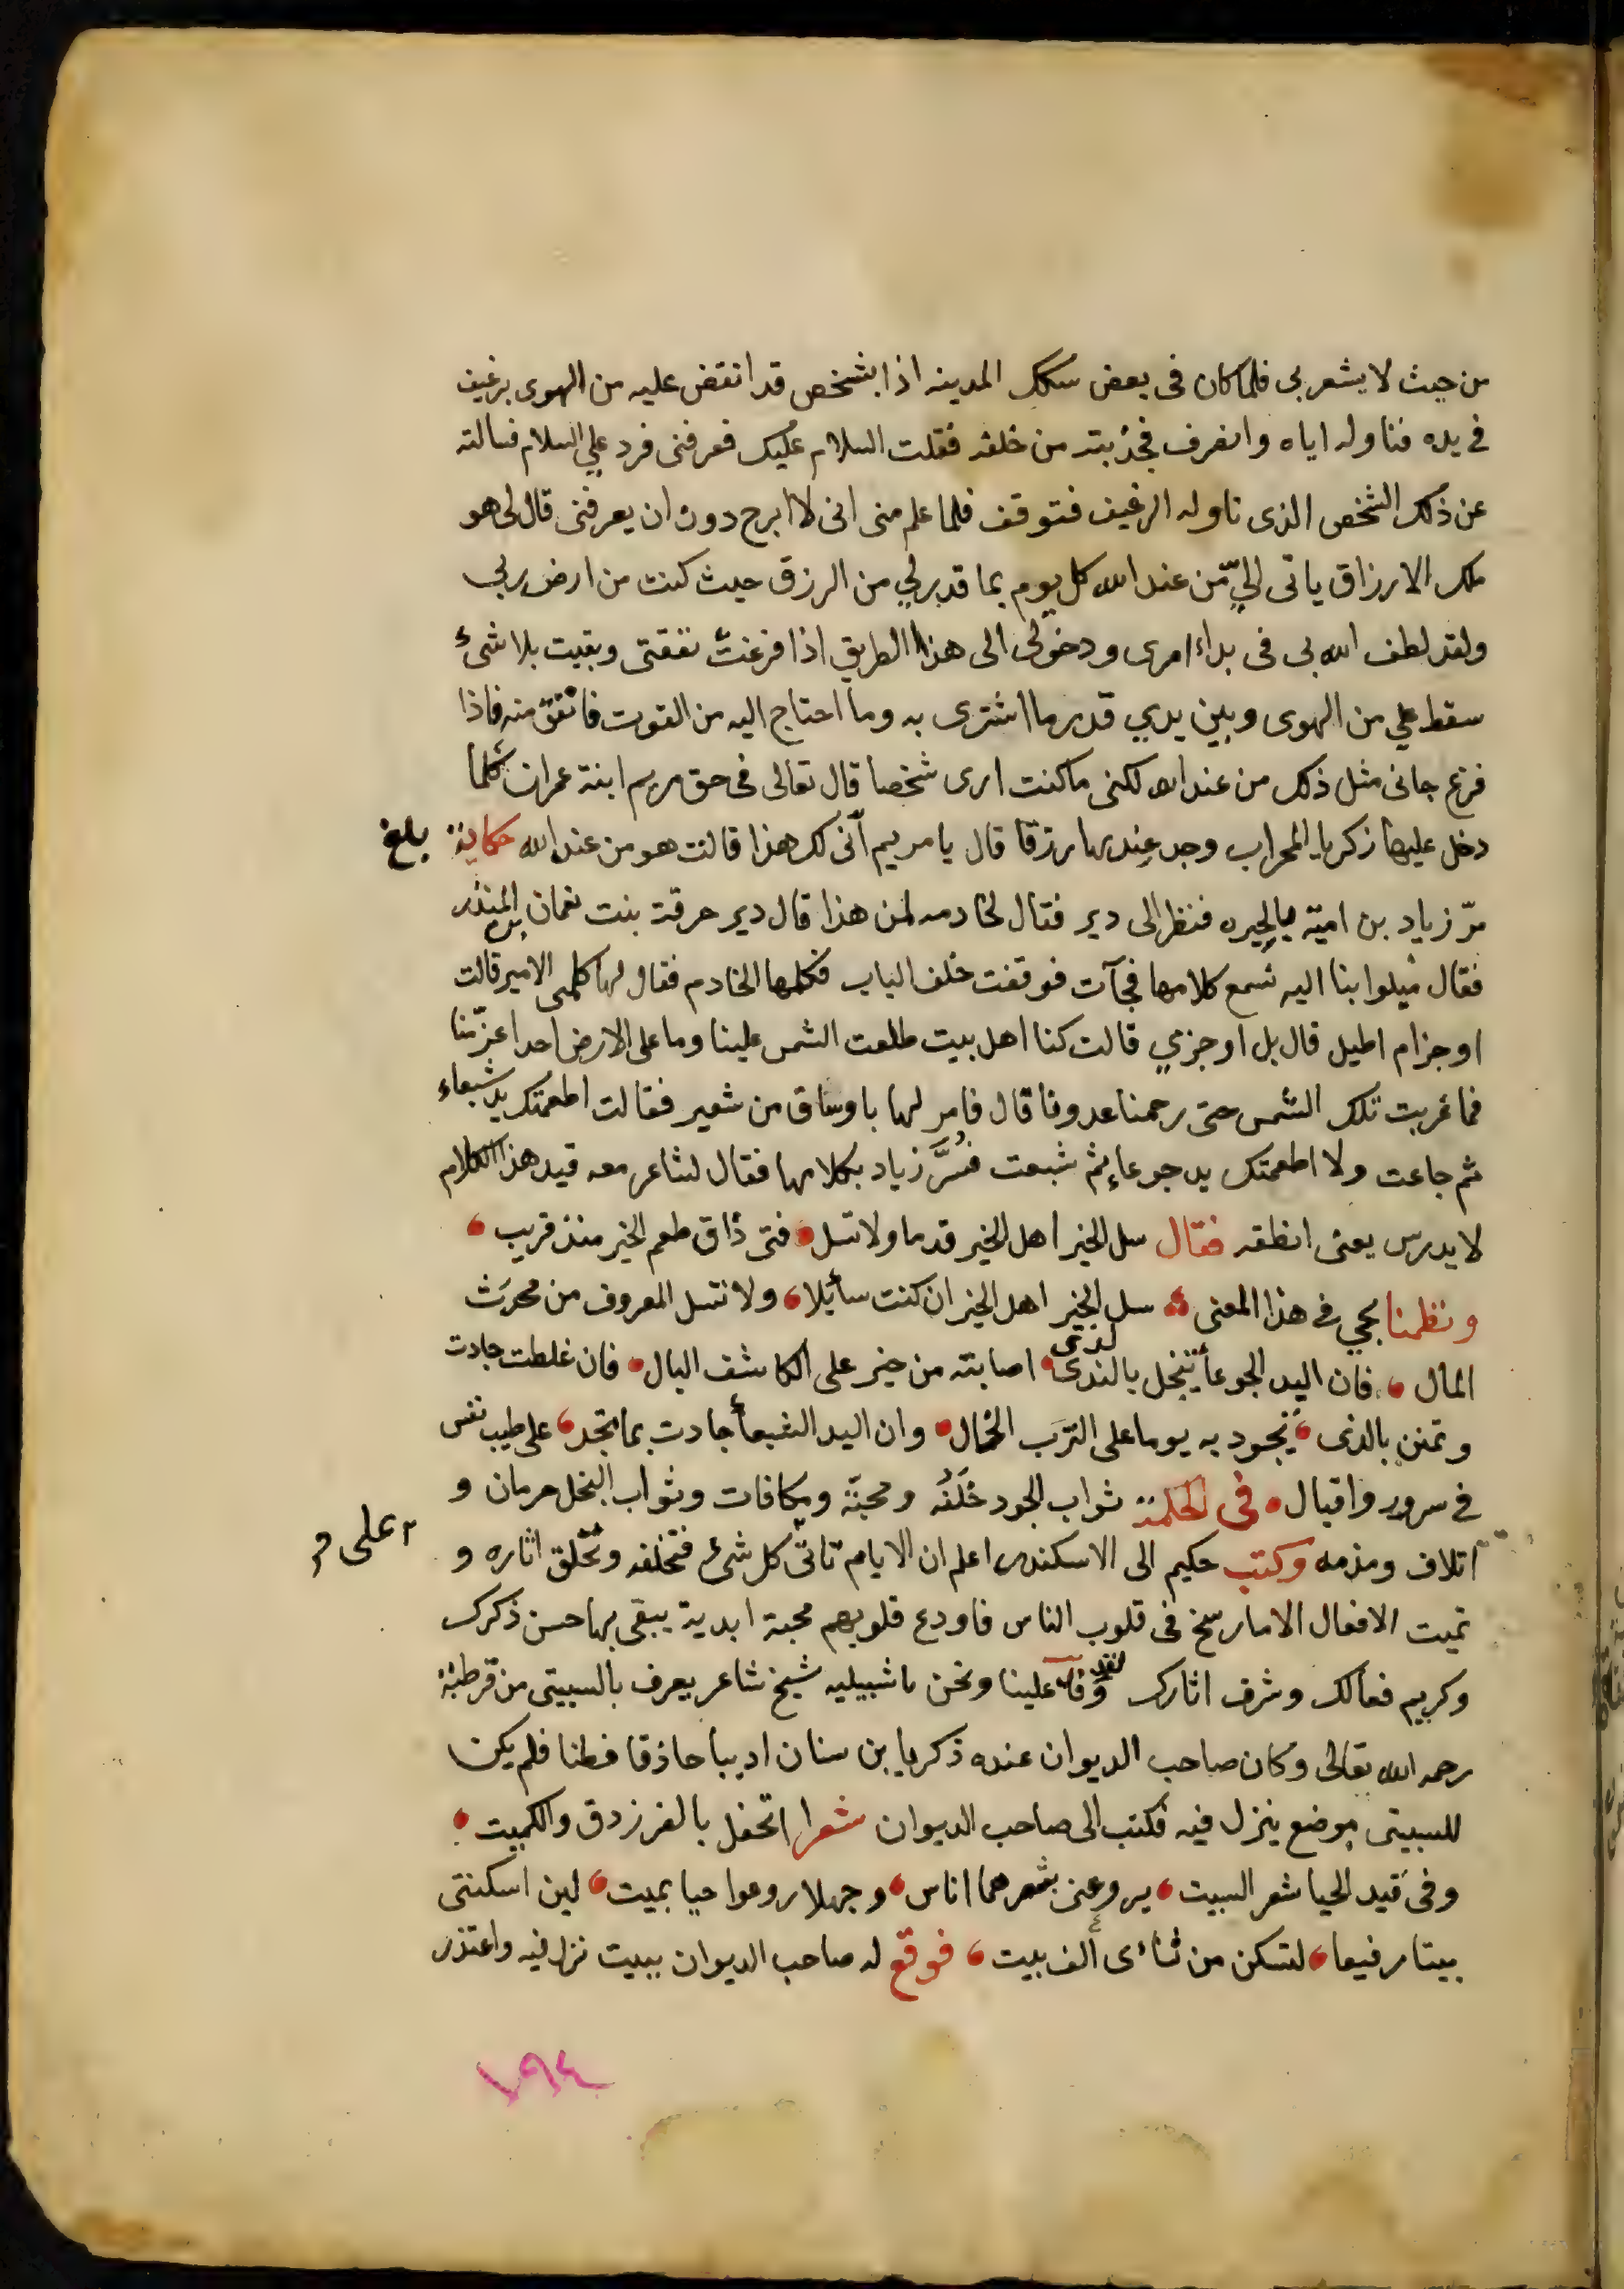 من حيث لا يشعر بى فلما كان فى بعض سكك المدينه اذا بشخص قد انقض عليه من الهوى برغيف
فى يده فناوله اياه وانصرف فجذبته من خلفه فقلت السلام عليك فعرفنى فرد علي السلام فسالته
عن ذلك الشخص الذى ناوله الرغيف فتوقف فلما علم منى انى لا ابرح دون ان يعرفنى قال لى هو
ملك الارزاق ياتى اليّ من عند الله كل يوم بما قدر لي من الرزق حيث كنت من ارض ربى
ولقد لطف الله بى فى بداء امرى ودخولى الى هذا الطريق اذا فرغت نفقتى وبقيت بلا شىء
سقط علي من الهوى وبين يدي قدر ما اشترى به وما احتاج اليه من القوت فانفق منه فاذا
فرغ جانى مثل ذلك من عند الله لكنى ما كنت ارى شخصا قال تعالى فى حق مريم ابنة عمران كلما
دخل عليها زكريا المحراب وجد عندها رزقا قال يا مريم أنى لك هذا قالت هو من عند الله حكاية بلغ
مرّ زياد بن امية بالحيره فنظر الى دير فقال لخادمه لمن هذا قال دير حرقة بنت نعمان بن المنذر
فقال ميلوا بنا اليه نسمع كلامها فجآت فوقفت خلف الباب فكلمها الخادم فقال لها كلمى الامير قالت
اوجز ام اطيل قال بل اوجزي قالت كنا اهل بيت طلعت الشمس علينا وما على الارض احد اعز منا
فما غربت تلك الشمس حتى رحمنا عدونا قال فامر لها باوساق من شعير فقالت اطعمتك يد شبعاء
ثم جاعت ولا اطعمتك يد جوعاء ثم شبعت فسُرَّ زياد بكلامها فقال لشاعر معه قيد هذا الكلام
لا يدرس يعنى انظمه فقال سل الخير اهل الخير قدما ولا تسل فتى ذاق طعم الخير منذ قريب
ونظمنا نحن في هذا المعنى سل الخير اهل الخير ان كنت سايلا ولا تسل المعروف من محدَث
المال فان اليد الجوعا تبخل بالندى لدى اصابته من خير على الكاشف البال فان غلطت جادت
وتمنن بالذى تجود به يوما على الترَب الخال وان اليد الشبعا جادت بما تجد على طيب نفس
في سرور واقبال فى الحكمة ثواب الجود خَلَفُه ومحبّة ومكافات وثواب البخل حرمان و
اتلاف ومذمه وكتب حكيم الى الاسكندر اعلم ان الايام تاتى على كل شىء فتخلقه وتخلق اثاره و
تميت الافعال الا ما رسخ فى قلوب الناس فاودع قلوبهم محبة ابدية يبقى بها حسن ذكرك
وكريم فعالك وشرف اثارك وفد علينا ونحن باشبيليه شيخ شاعر يعرف بالسبيتى من قرطبة
رحمه الله تعالى وكان صاحب الديوان عنده ذكريا بن سنان اديبا حاذقا فطنا فلم يكن
للسبيتى موضع ينزل فيه فكتب الى صاحب الديوان شعرا اتحفل بالفرزدق والكميت
وفى قيد الحيا شعر السبيت يروعن بشعرهما اناس وجهلا روعوا حيا بميت لين اسكنتى
بيتا رفيعا لتسكن من ثناءى الف بيت فوقع له صاحب الديوان ببيت نزل فيه واعتذر
١٩٤